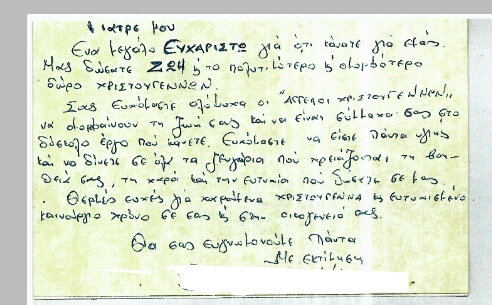 Γιατρέ μου
Ένα μεγάλο ΕΥΧΑΡΙΣΤΩ γιά ότι κάνατε γιά εμάς.
Μας δώσατε ΖΩΗ & το πολυτιμότερο & ομορφότερο
δώρο ΧΡΙΣΤΟΥΓΕΝΝΩΝ.
Σας Ευχόμαστε ολόψυχα οι "ΑΓΓΕΛΟΙ ΧΡΙΣΤΟΥΓΕΝΝΩΝ"
να ομορφαίνουν τη ζωή σας και να είναι σύμμαχοί σας στο
δύσκολο έργο πού κάνετε. Ευχόμαστε να είστε πάντα υγιής
και να δίνετε σε όλα τα ζευγάρια πού χρειάζονται τη βοή-
θειά σας, τη χαρά και την ευτυχία πού δώσατε σε μας.
Θερμές ευχές γιά χαρούμενα ΧΡΙΣΤΟΥΓΕΝΝΑ & ευτυχισμένο
καινούργιο χρόνο σε σας & στην οικογένειά σας.
Θα σας ευγνωμονούμε πάντα
Με εκτίμηση